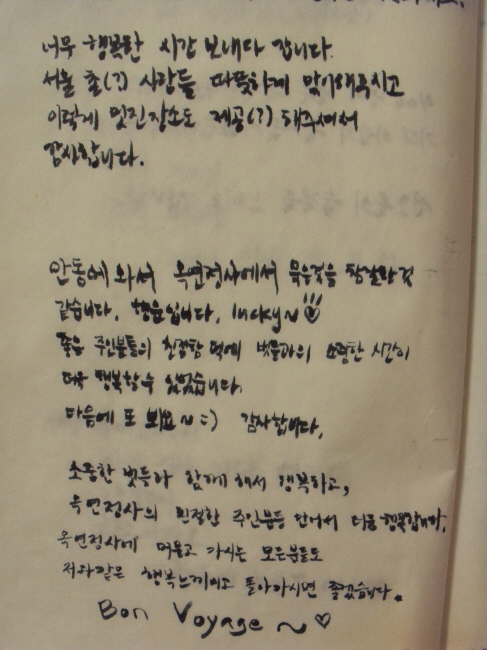 너무 행복한 시간 보내다 갑니다.
서울 촌(?) 사람들 따뜻하게 맞이해주시고
이렇게 멋진장소도 제공(?) 해주셔서
감사합니다.
안동에 와서 옥연정사에서 묵은것을 참 잘한 것
같습니다. 행운입니다. lucky~
좋은 주인분들의 친절함 덕에 벗들과의 소중한 시간이
더욱 행복할수 있었습니다.
다음에 또 뵈요~ =) 감사합니다.
소중한 벗들과 함께 해서 행복하고,
옥연정사의 친절한 주인분들 만나서 더욱 행복합니다.
옥연정사에 머물고 가시는 모든분들도
저와같은 행복느끼시고 돌아가시면 좋겠습니다.
Bon Voyage ~ ♡